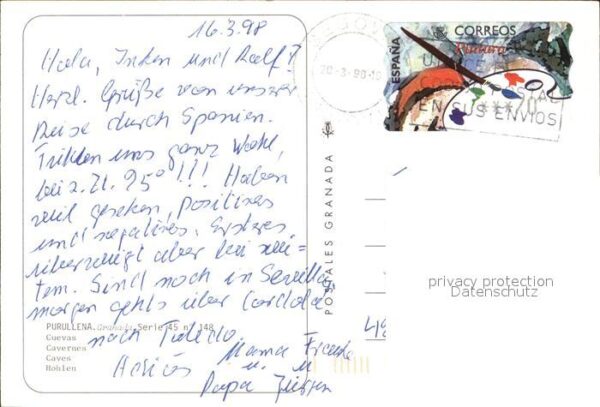 16.3.98
Hola, Inken und Ralf!
Herzl. Grüße von unserer
Reise durch Spanien.
Fühlen uns ganz wohl,
bei z. Zt. 25°!!! Haben
viel gesehen, positives
und negatives. Ersteres
überwiegt aber bei wei=
tem. Sind noch in Sevilla,
morgen gehts über Cordoba
nach Toledo
Adiós Mama
u.
Papa
PURULLENA. Granada Serie 45 nº 148
Cuevas
Cavernes
Caves
Hohlen
POSTALES GRANADA
20-3-98-18
CORREOS
Pintura
ESPAÑA
***70
POSTAL
EN SUS ENVIOS
privacy protection
Datenschutz